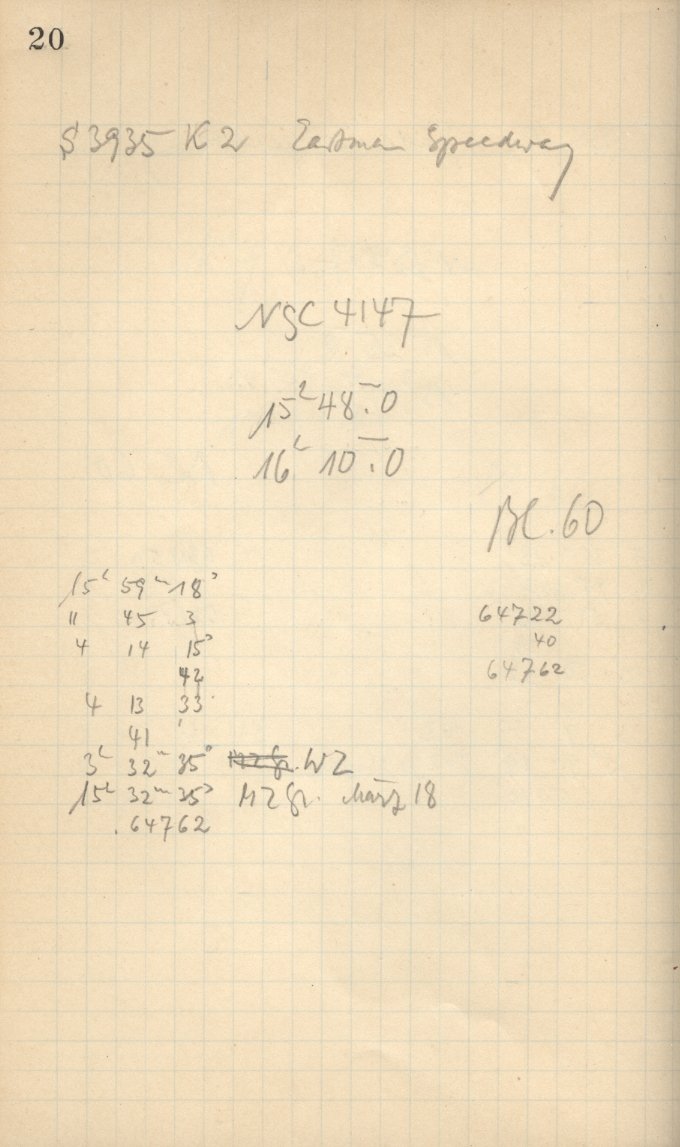 20
S 3935 K 2 Eastman Speedway
NGC 4147
15ʰ 48ᵐ.0
16ʰ 10ᵐ.0
Bl. 60
15ʰ 59ᵐ 18ˢ
" 45 3
4 14 15ˢ
42
4 13 33
41
3ʰ 32ᵐ 35ˢ WZ
15ʰ 32ᵐ 35ˢ MZGr. März 18
.64762
64722
40
64762